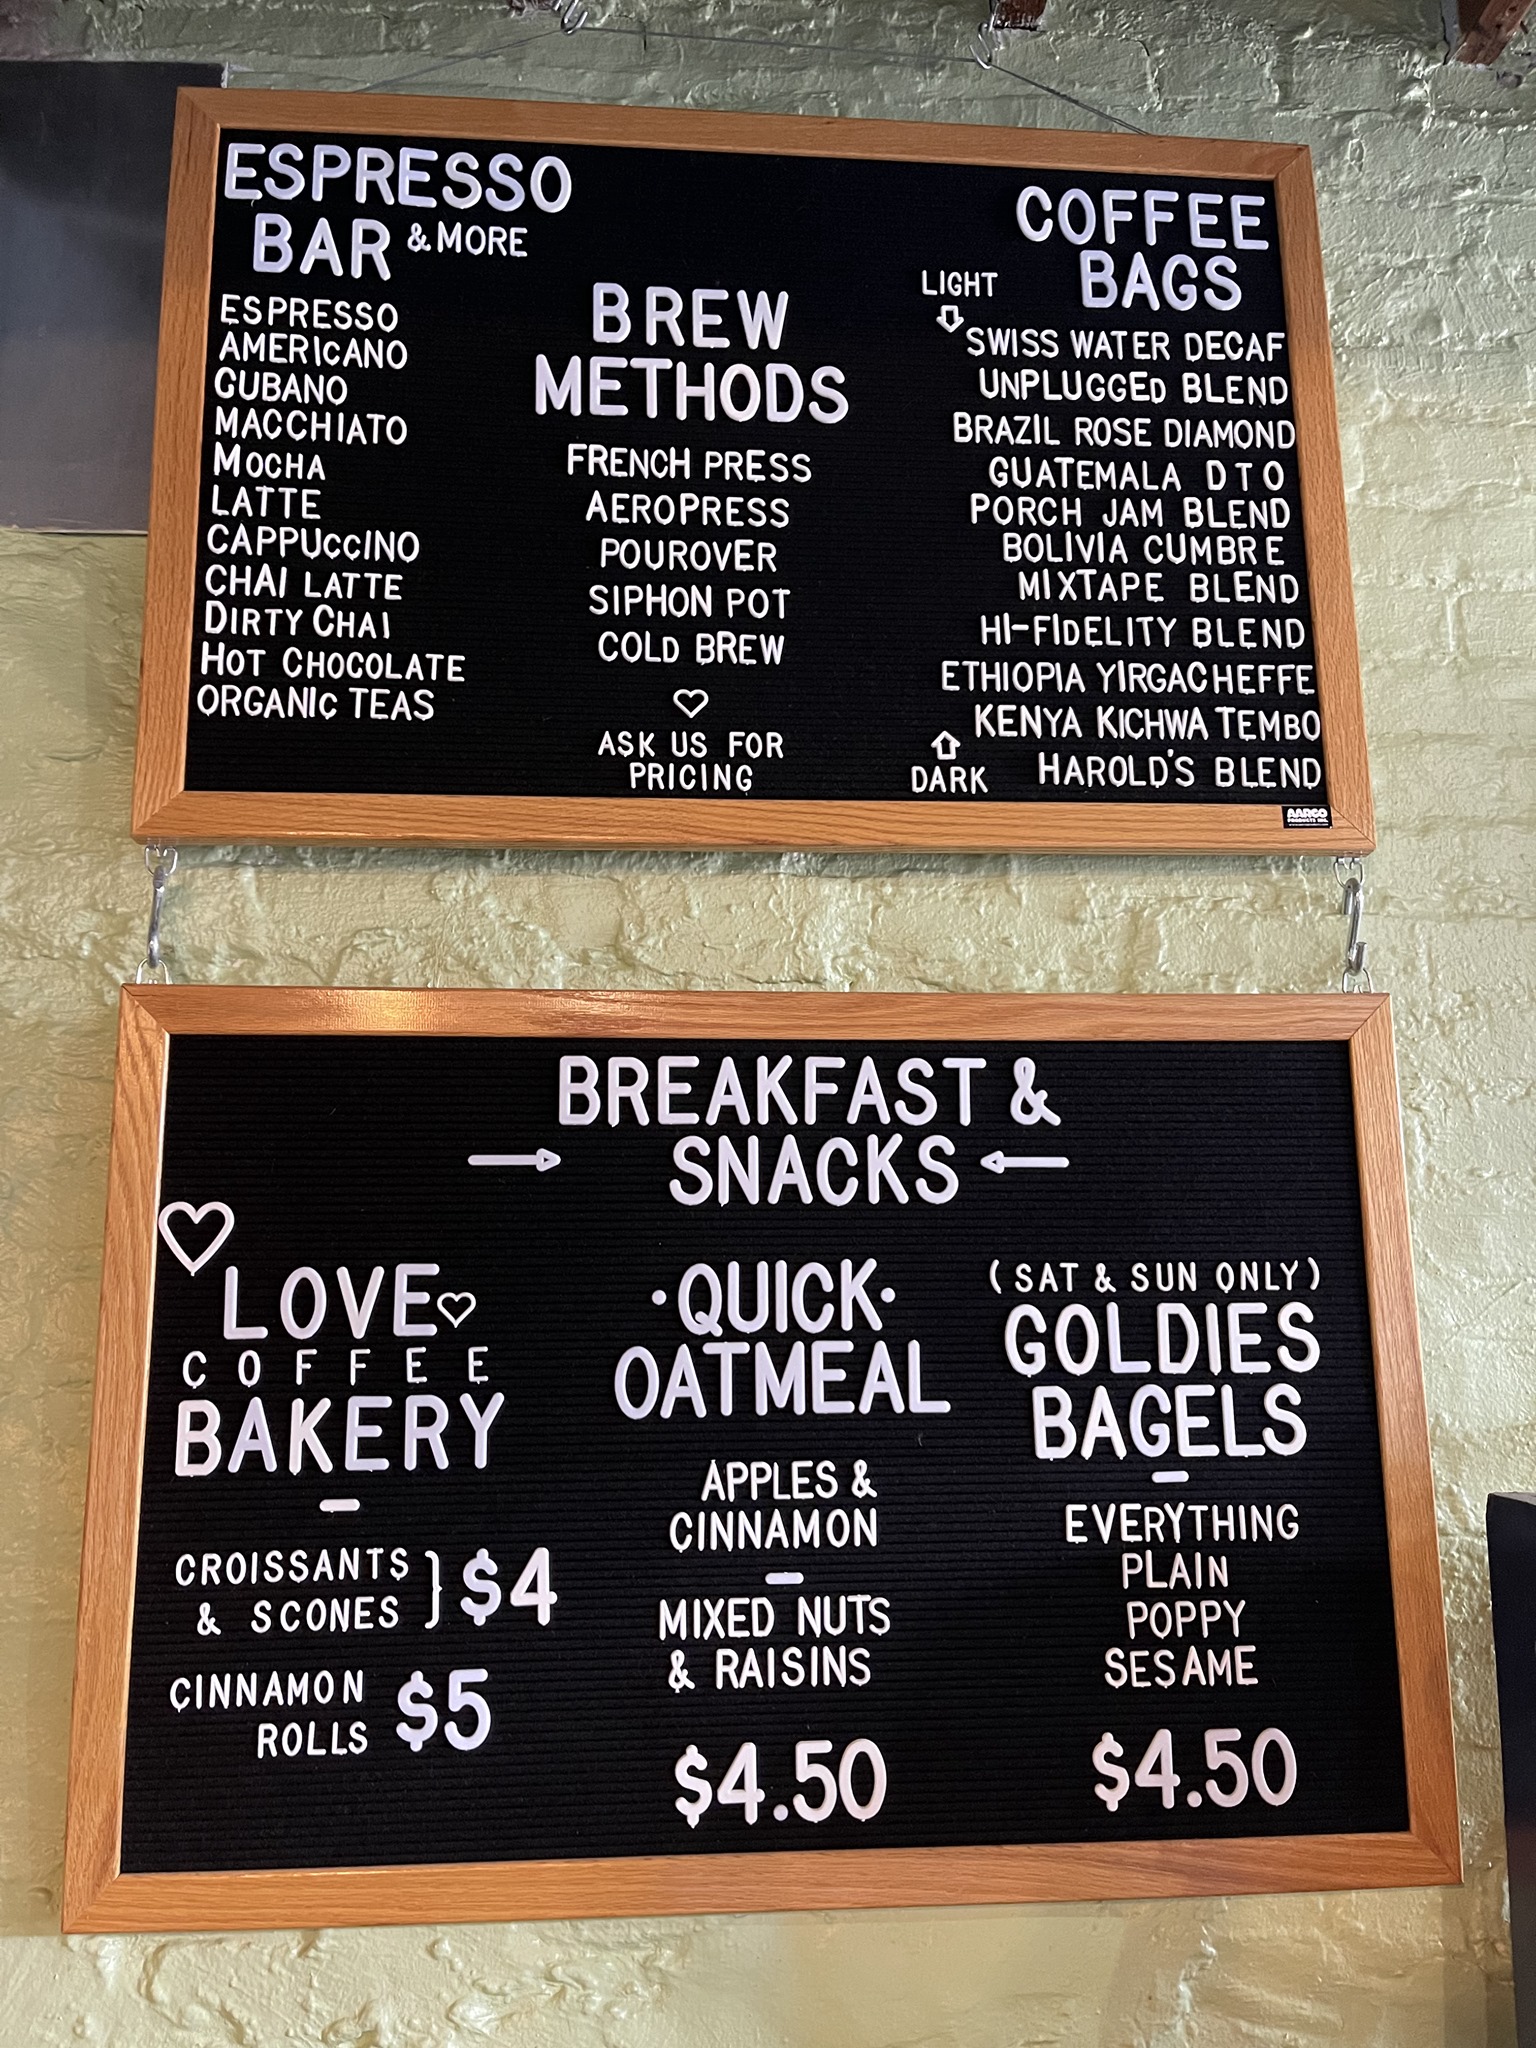 ESPRESSO
BAR & MORE
ESPRESSO
AMERICANO
CUBANO
MACCHIATO
MOCHA
LATTE
CAPPUCCINO
CHAI LATTE
DIRTY CHAI
HOT CHOCOLATE
ORGANIC TEAS
BREW
METHODS
FRENCH PRESS
AEROPRESS
POUROVER
SIPHON POT
COLD BREW
ASK US FOR
PRICING
COFFEE
BAGS
LIGHT
SWISS WATER DECAF
UNPLUGGED BLEND
BRAZIL ROSE DIAMOND
GUATEMALA DTO
PORCH JAM BLEND
BOLIVIA CUMBRE
MIXTAPE BLEND
HI-FIDELITY BLEND
ETHIOPIA YIRGACHEFFE
KENYA KICHWA TEMBO
HAROLD'S BLEND
DARK
AARCO
PRODUCTS INC.
BREAKFAST &
SNACKS
LOVE
COFFEE
BAKERY
-
CROISSANTS
& SCONES } $4
CINNAMON
ROLLS $5
·QUICK·
OATMEAL
APPLES &
CINNAMON
-
MIXED NUTS
& RAISINS
$4.50
(SAT & SUN ONLY)
GOLDIES
BAGELS
-
EVERYTHING
PLAIN
POPPY
SESAME
$4.50